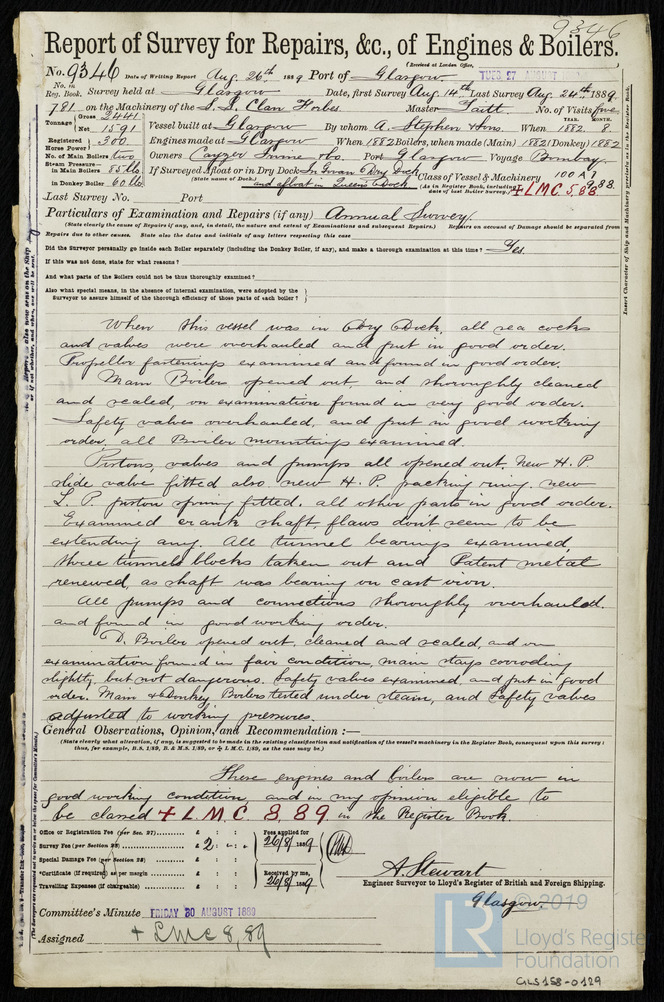 9346
Report of Survey for Repairs, &c., of Engines & Boilers.
(Received at London Office,
No. 9346 Date of Writing Report Aug. 26th 1889 Port of Glasgow TUES 27 AUGUST
No. in Reg. Book. Survey held at Glasgow Date, first Survey Aug. 14th Last Survey Aug. 24th 1889
781 on the Machinery of the S.S. Clan Forbes Master Taitt No. of Visits five
Tonnage Gross 2441 Net 1591 Vessel built at Glasgow By whom A. Stephen & Sons. When YEAR. 1882 MONTH. 8
Registered Horse Power 300 Engines made at Glasgow When 1882 Boilers, when made (Main) 1882 (Donkey) 1882
No. of Main Boilers two Owners Cayzer Irvine & Co. Port Glasgow Voyage Bombay
Steam Pressure in Main Boilers 85 lbs If Surveyed Afloat or in Dry Dock In Govan Dry Dock Class of Vessel & Machinery 100 A1
in Donkey Boiler 60 lbs (State name of Dock) and afloat in Queen's Dock (As in Register Book, including date of last Boiler Survey.) + L M C 5,88
Last Survey No. Port
Particulars of Examination and Repairs (if any) Annual Survey
(State clearly the cause of Repairs if any, and, in detail, the nature and extent of Examinations and subsequent Repairs.) Repairs on account of Damage should be separated from
Repairs due to other causes. State also the dates and initials of any letters respecting this case
Did the Surveyor personally go inside each Boiler separately (including the Donkey Boiler, if any), and make a thorough examination at this time? Yes.
If this was not done, state for what reasons?
And what parts of the Boilers could not be thus thoroughly examined?
Also what special means, in the absence of internal examination, were adopted by the
Surveyor to assure himself of the thorough efficiency of those parts of each boiler?
When this vessel was in Dry Dock, all sea cocks
and valves were overhauled and put in good order.
Propeller fastenings examined and found in good order.
Main Boilers opened out, and thoroughly cleaned
and scaled, on examination found in very good order.
Safety valves overhauled, and put in good working
order, all Boiler mountings examined.
Pistons, valves and pumps all opened out, New H. P.
slide valve fitted also, new H. P. packing ring, new
L. P. piston spring fitted. all other parts in good order.
Examined crank shaft, flaws dont seem to be
extending any. All tunnel bearings examined,
three tunnel blocks taken out and Patent metal
renewed, as shaft was bearing on cast iron.
All pumps and connections thoroughly overhauled.
and found in good working order.
D. Boiler opened out, cleaned and scaled, and on
examination found in fair condition, main stays corroding
slightly, but not dangerous. Safety valves examined, and put in good
order. Main & Donkey Boilers tested under steam, and Safety valves
adjusted to working pressures.
General Observations, Opinion, and Recommendation:—
(State clearly what alteration, if any, is suggested to be made in the existing classification and notification of the vessel's machinery in the Register Book, consequent upon this survey:
thus, for example, B.S. 1/89, B. & M.S. 1/89, or + L M C. 1/89, as the case may be.)
These engines and boilers are now in
good working condition, and in my opinion eligible to
be classed + L. M. C. 8, 89 in the Register Book.
Office or Registration Fee (per Sec. 27) £ : :
Survey Fee (per Section 28) £ 2 : " : "
Special Damage Fee (per Section 28) £ : :
*Certificate (if required) as per margin £ : :
Travelling Expenses (if chargeable) £ : :
Fees applied for
26/8/ 1889
Received by me,
26/8/ 1889
A. Stewart
Engineer Surveyor to Lloyd's Register of British and Foreign Shipping.
Glasgow.
Committee's Minute FRIDAY 30 AUGUST 1889
Assigned + LMC 8,89
Insert Character of Ship and Machinery precisely as in the Register Book.
© 2019
LR
Lloyd's Register
Foundation
GLS158-0129